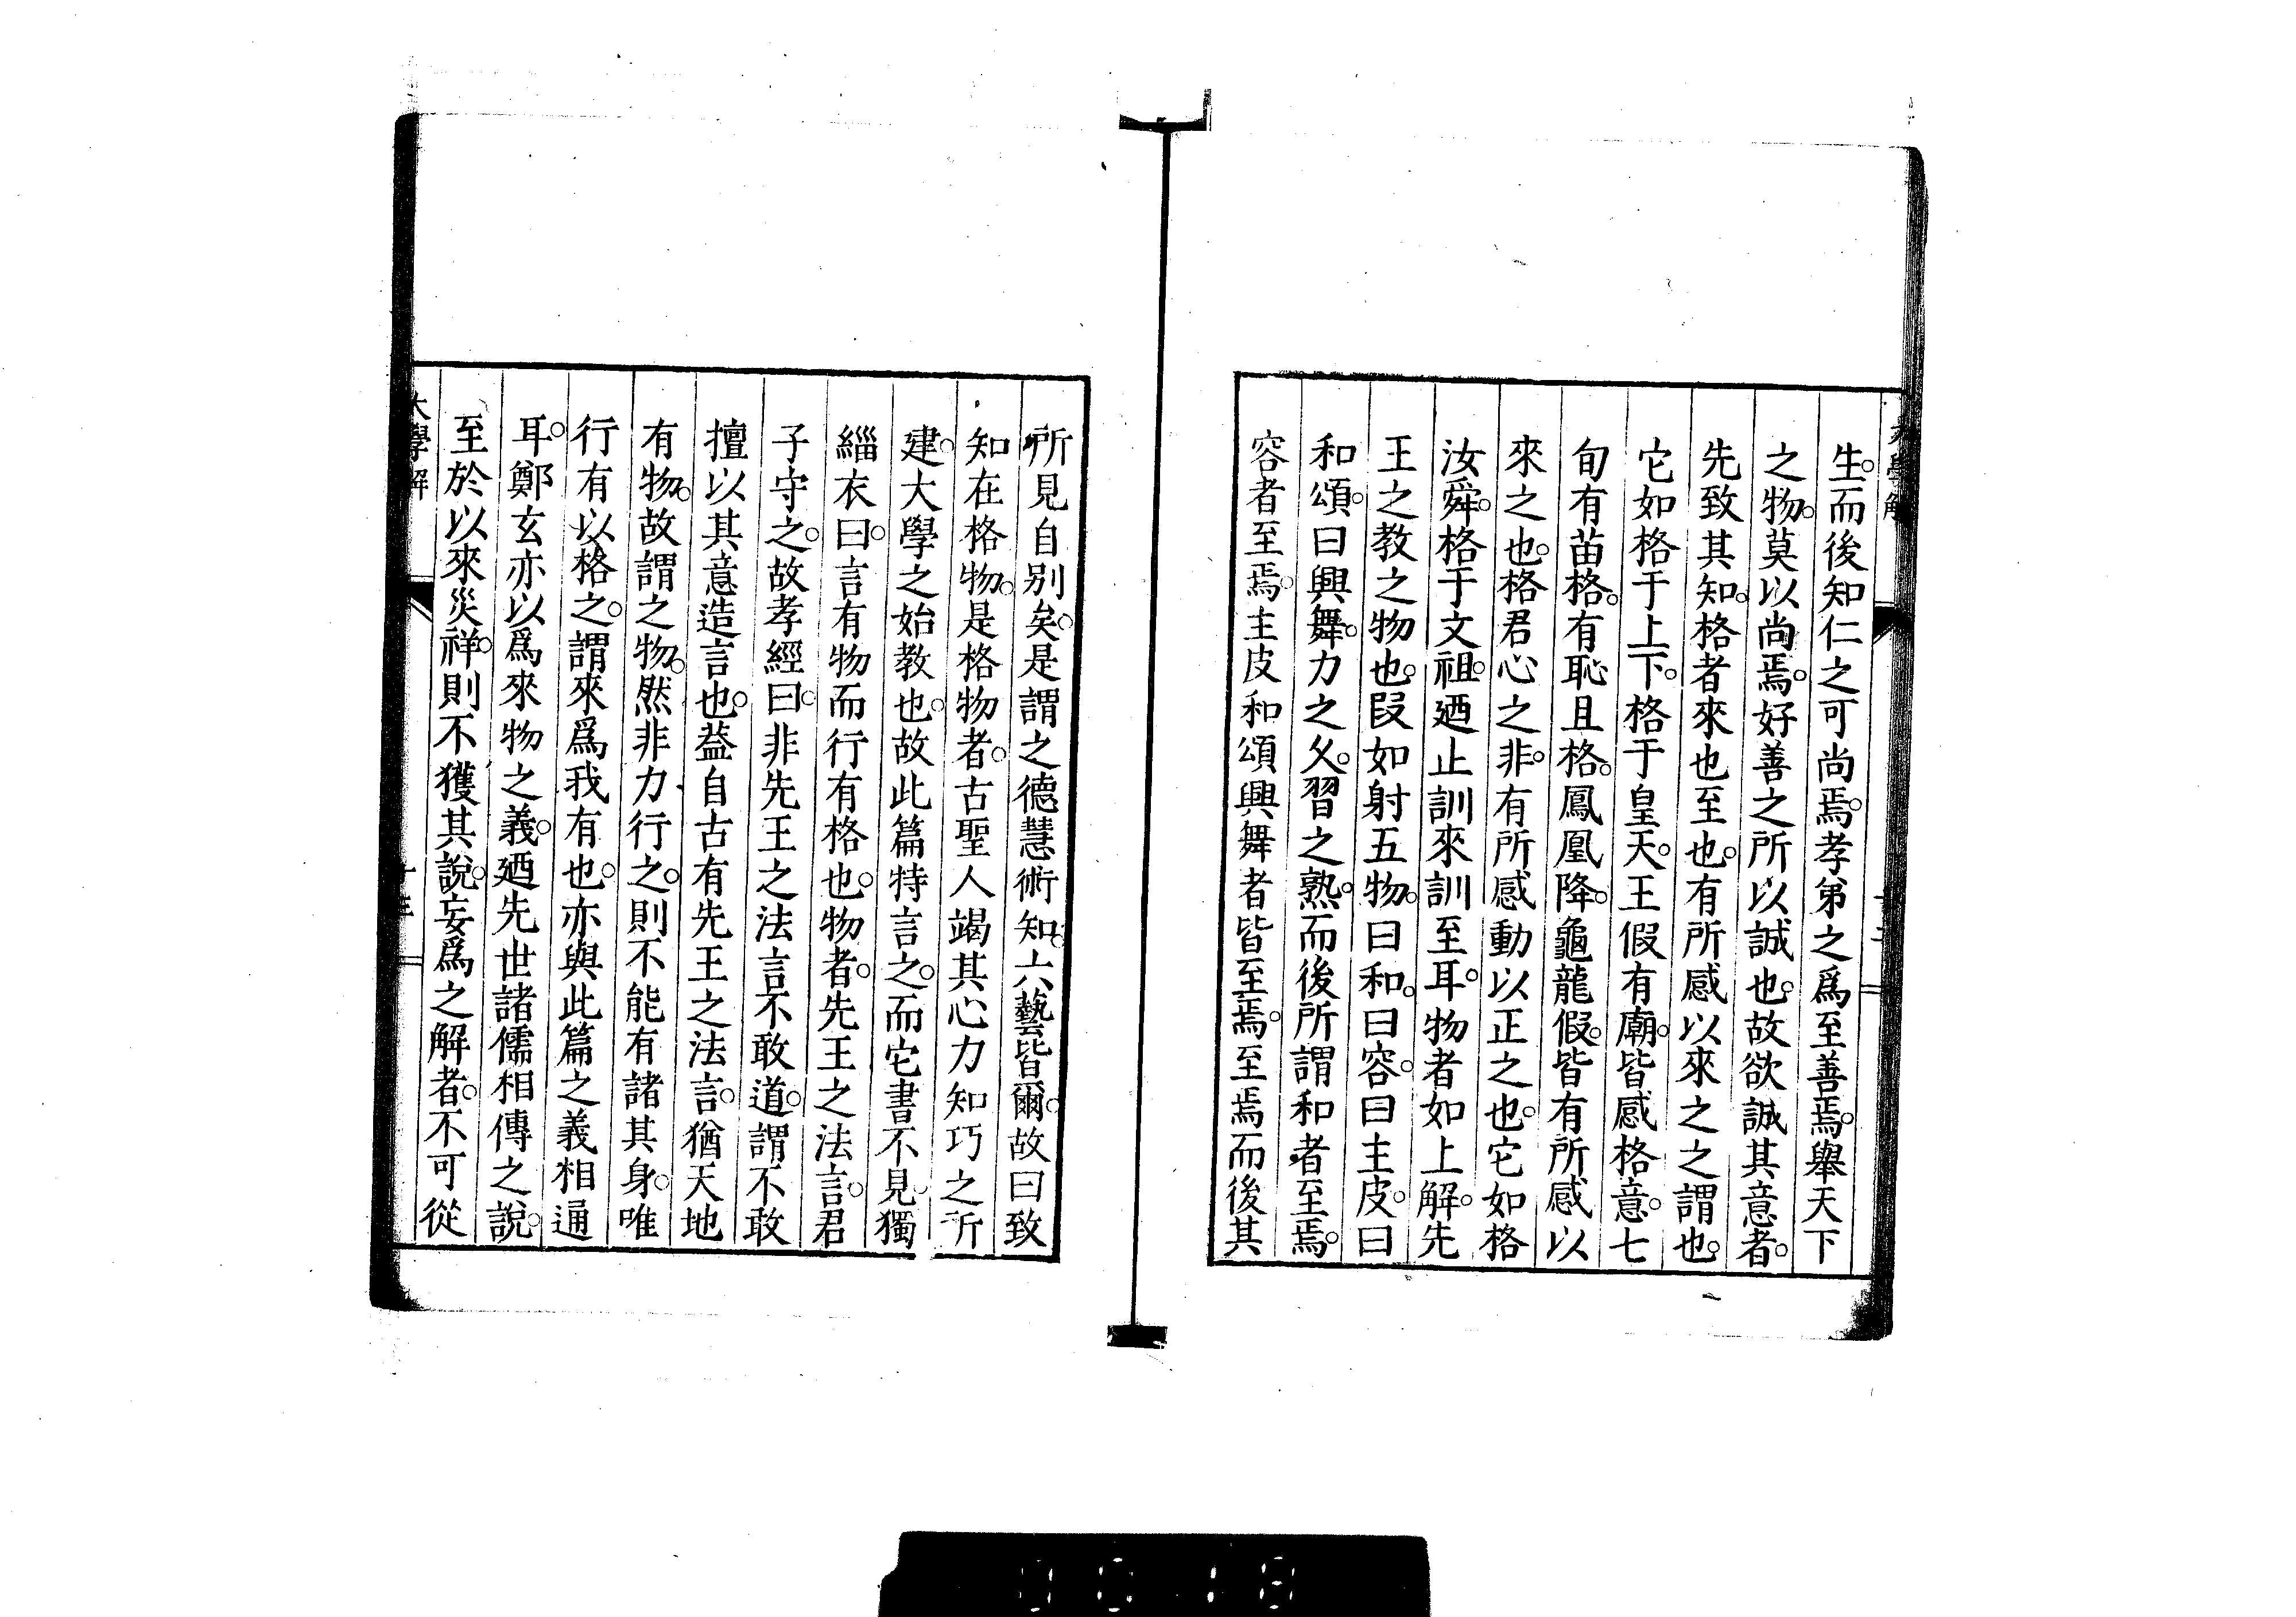 大學解
生。而後知仁之可尚焉。孝弟之爲至善焉。舉天下
之物。莫以尚焉。好善之所以誠也。故欲誠其意者。
先致其知。格者來也至也。有所感以來之之謂也。
它如格于上下。格于皇天。王假有廟。皆感格意。七
旬有苗格。有恥且格。鳳凰降。龜龍假。皆有所感以
來之也。格君心之非。有所感動以正之也。它如格
汝舜。格于文祖。廼止訓來訓至耳。物者如上解。先
王之教之物也。叚如射五物。曰和。曰容。曰主皮。曰
和頌。曰興舞。力之久。習之熟。而後所謂和者至焉。
容者至焉。主皮和頌興舞者皆至焉。至焉而後其
所見自別矣。是謂之德慧術知。六藝皆爾。故曰致
知在格物。是格物者。古聖人竭其心力知巧之所
建。大學之始教也。故此篇特言之。而它書不見。獨
緇衣曰。言有物而行有格也。物者。先王之法言。君
子守之。故孝經曰。非先王之法言不敢道。謂不敢
擅以其意造言也。葢自古有先王之法言。猶天地
有物。故謂之物。然非力行之。則不能有諸其身。唯
行有以格之。謂來爲我有也。亦與此篇之義相通
耳。鄭玄亦以爲來物之義。廼先世諸儒相傳之說。
至於以來災祥。則不獲其說。妄爲之解者。不可從
大學解
十三
0018